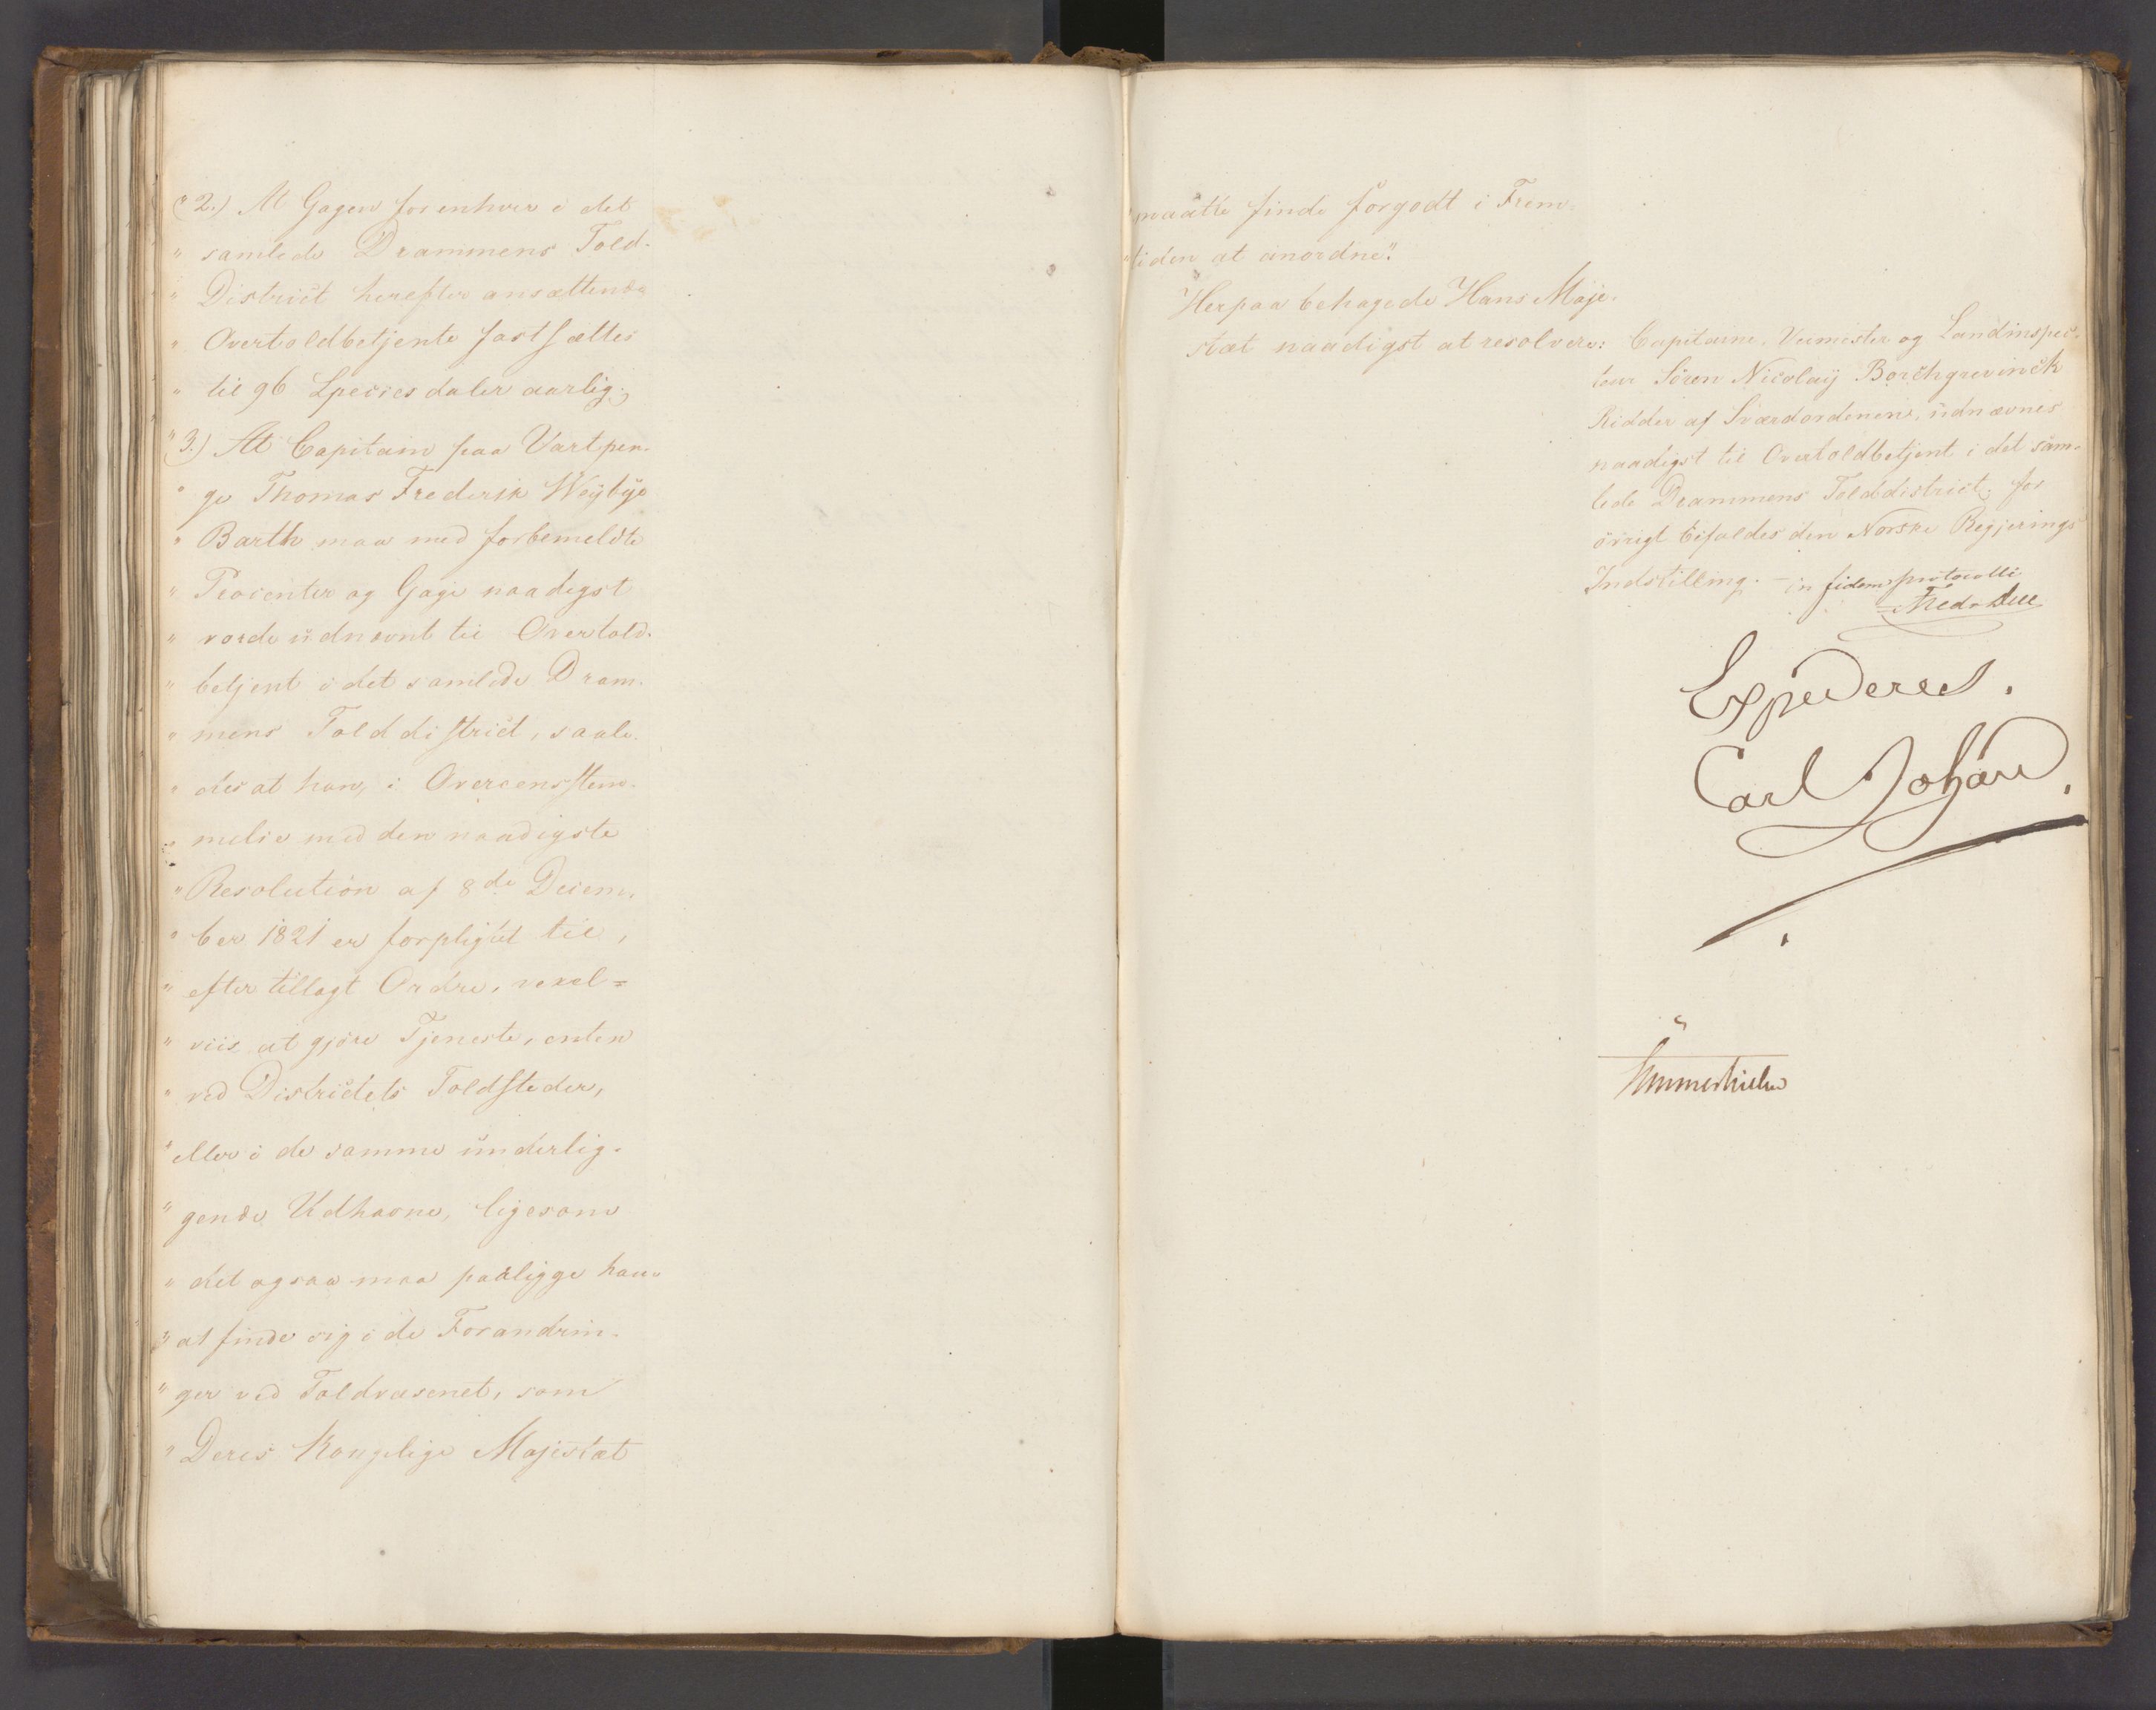 "2.) At Gagen for enhver i det
" samlede Drammens Told-
" District herefter ansættende
" Overtoldbetjente fastsættes
" til 96 Speciesdaler aarlig;
"3.) At Capitain paa Vartpen-
" ge Thomas Frederik Weybye
" Barth maa med forbemeldte
" Procenter og Gage naadigst
" vorde udnævnt til Overtold-
" betjent i det samlede Dram-
" mens Tolddistrict, saale-
" des at han, i Overeensstem-
" melse med den naadigste
" Resolution af 8de Decem-
" ber 1821 er forpligtet til,
" efter tillagt Ordre, vexel=
" viis at gjöre Tjeneste, enten
" ved Districtets Toldsteder,
" eller i de samme underlig-
" gende Udhavne, ligesom
" det ogsaa maa paaligge ham
" at finde sig i de Forandrin-
" ger ved Toldvæsenet, som
" Deres Kongelige Majestæt
" maatte finde forgodt i Frem-
" tiden at anordne."
Herpaa behagede Hans Maje-
stæt naadigst at resolvere: Capitaine, Veimester og Landinspec-
teur Sören Nicolay Borchgrevinck
Ridder af Sværdordenen, udnævnes
naadigst til Overtoldbetjent i det sam-
lede Drammens Tolddistrict; for
övrigt bifaldes den Norske Regjerings
Indstilling. - in fidem protocolli
Fred. Due
Expederes.
Carl Johan.